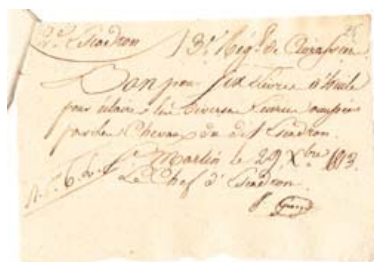 2e Escadron 13e Régt. de Cuirassiers
Bon pour six Livres d'huile
pour éclairer les diverses Ecuries occupées
par les Chevaux du dit Escadron.
St. Martin le 29 Xbre 1813.
Le Chef d'Escadron